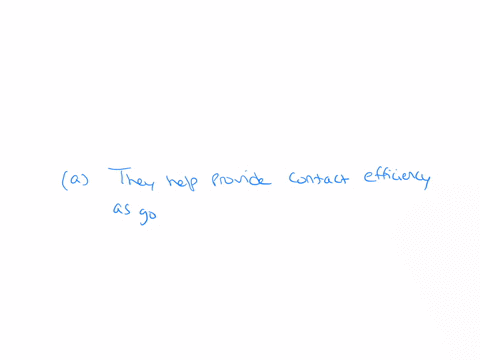 (a) They help provide contact efficiency
as go